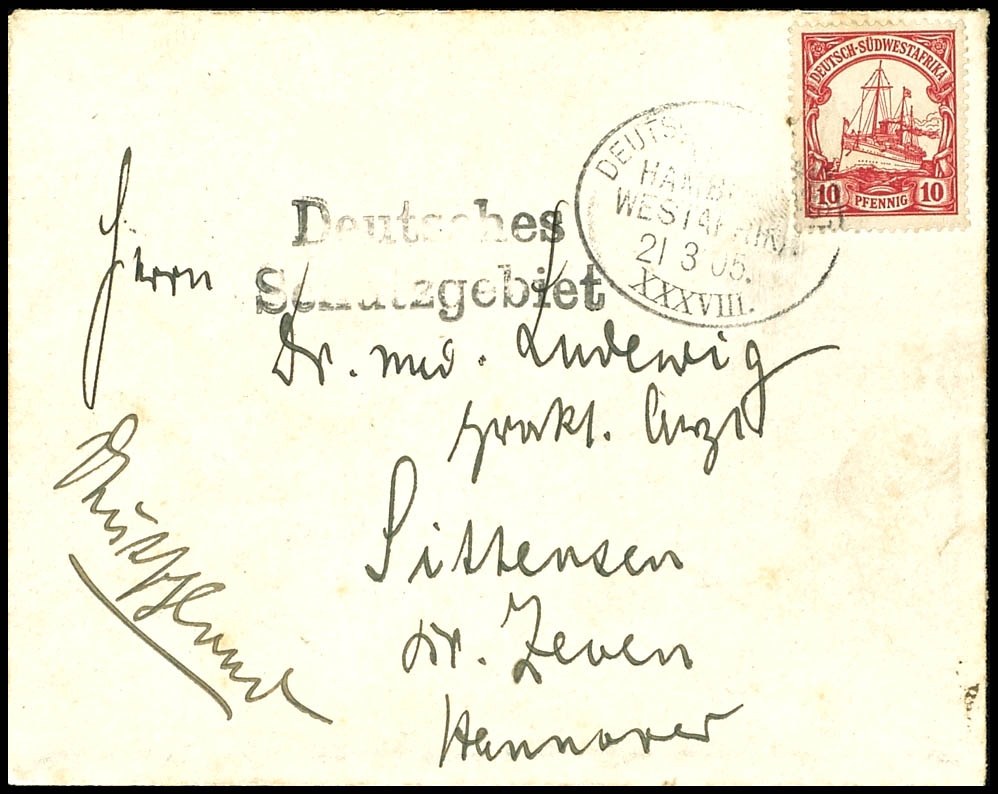 DEUTSCH-SÜDWESTAFRIKA
10 PFENNIG 10
HAMB
WESTAFRIKA
21 3 05.
XXXVIII.
Deutsches
Schutzgebiet
Herrn
Dr. med. Ludewig
prakt. Arzt
Sittensen
Kr. Zeven
Hannover
Deutschland